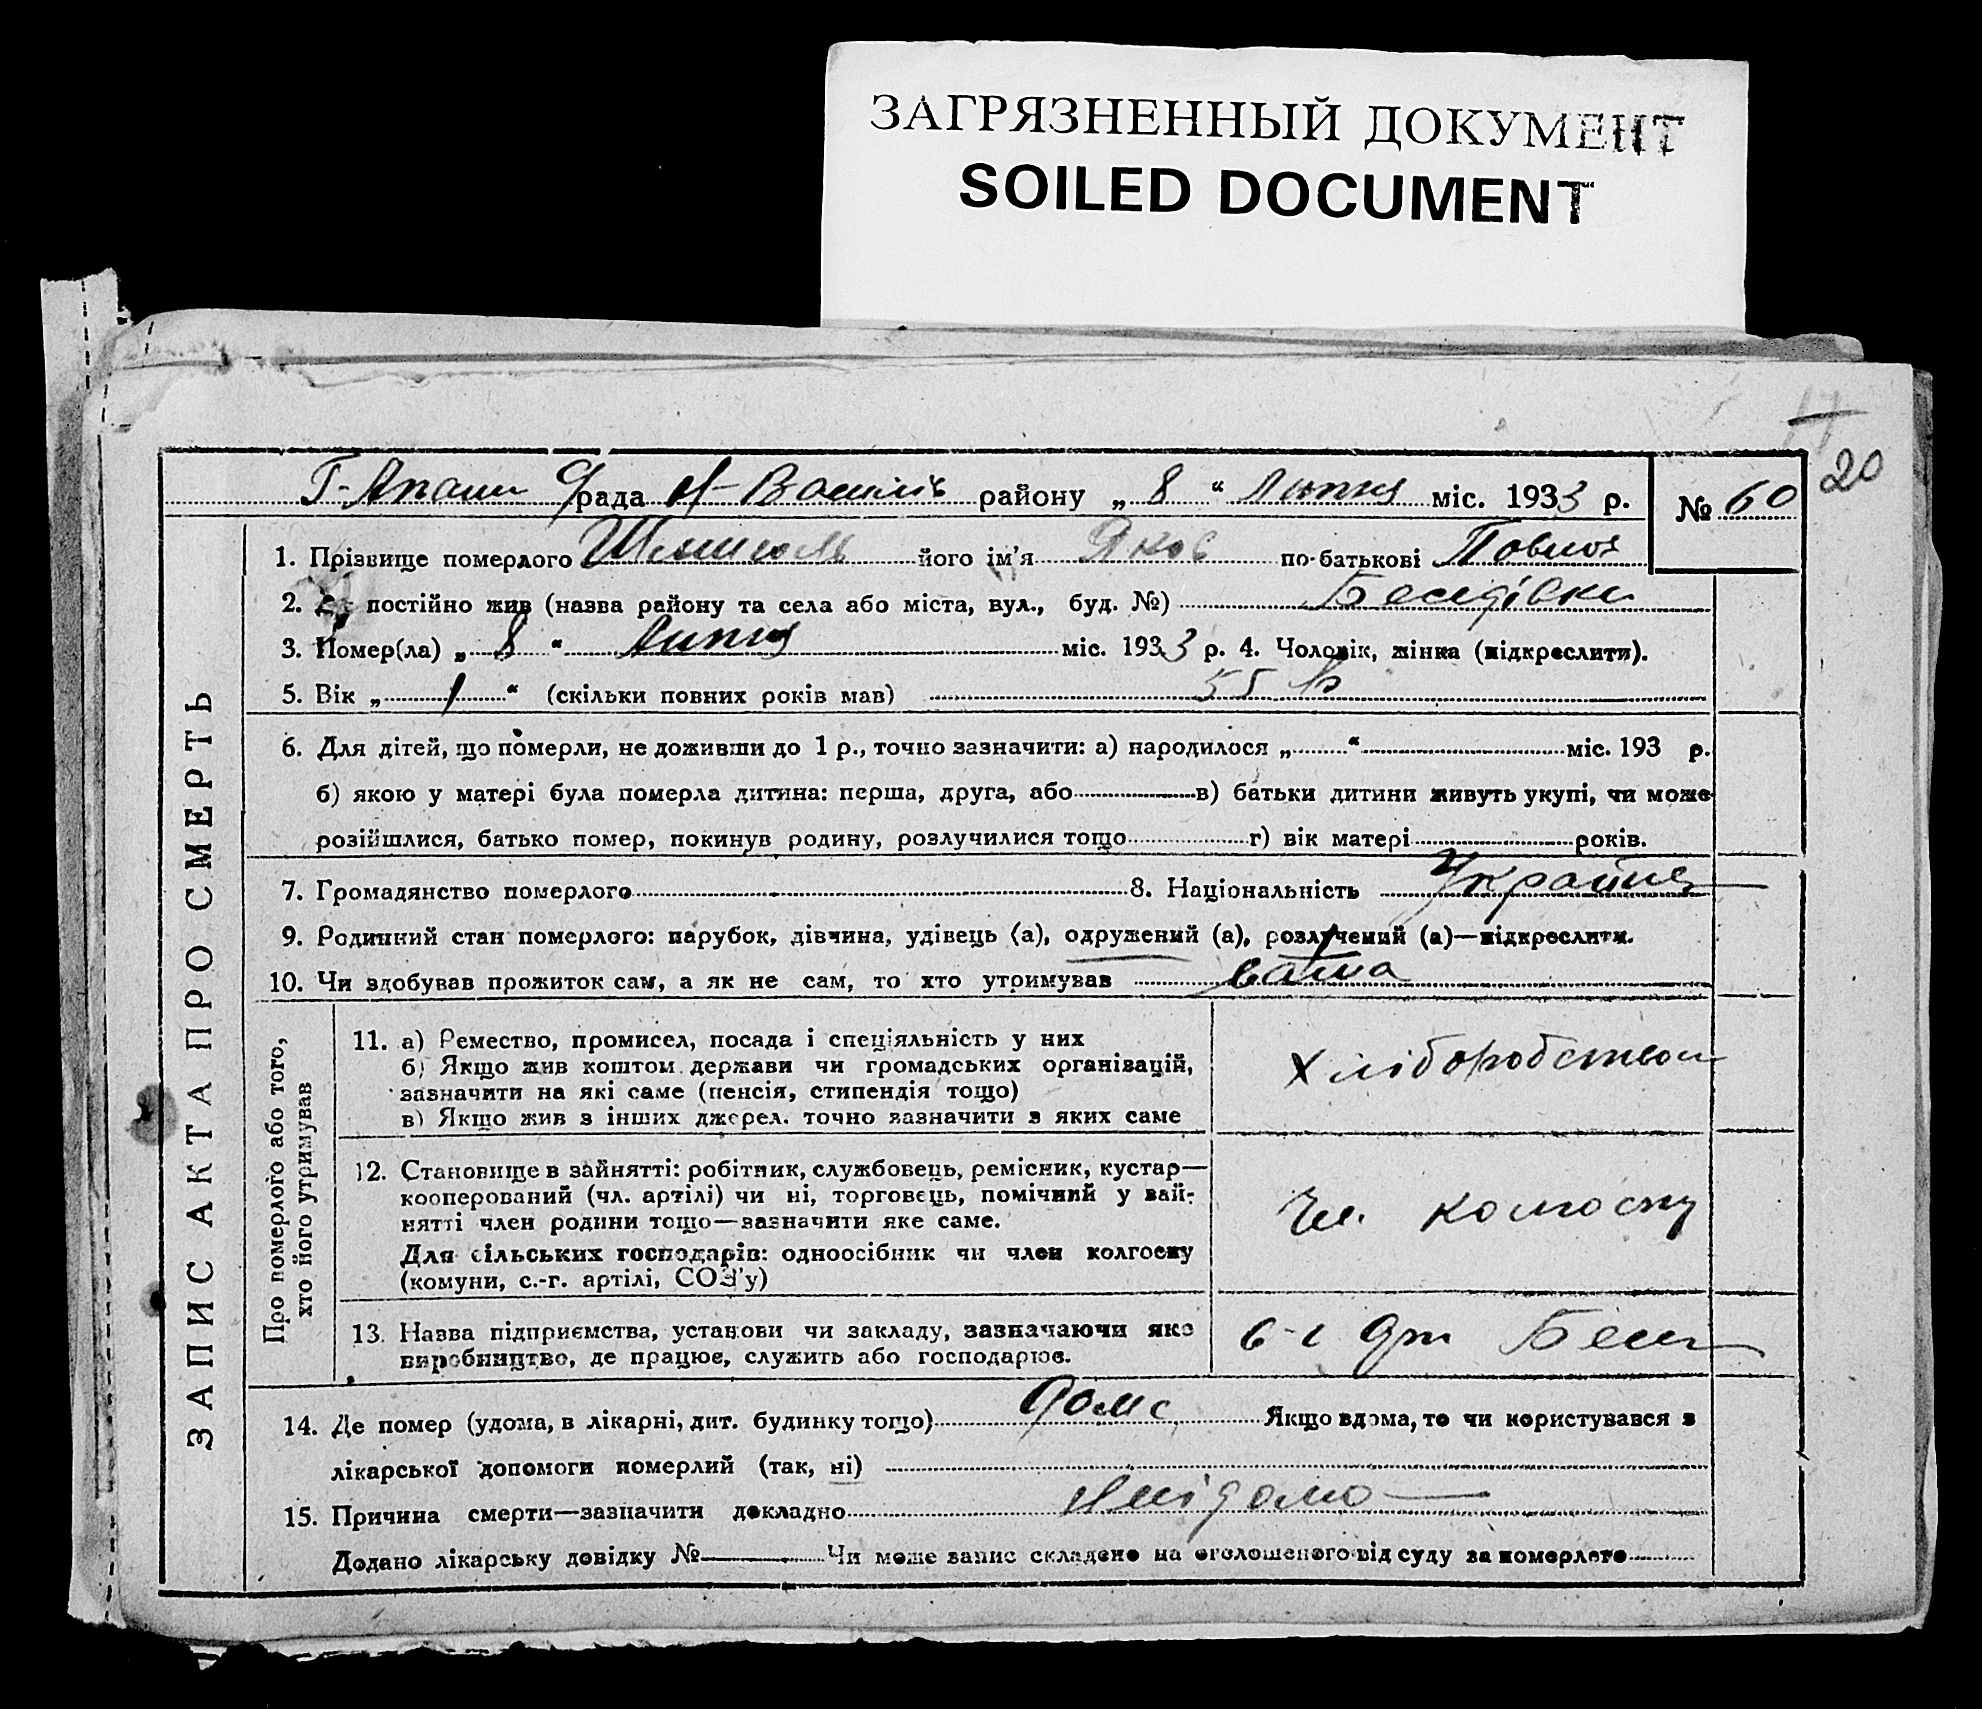 ЗАГРЯЗНЕННЫЙ ДОКУМЕНТ
SOILED DOCUMENT
17
20
рада Н-Василів району „ 8 “ Лютня міс. 1933 р.
№ 60
1. Прізвище померлого його ім’я Яков по-батькові Павлов
2. Де постійно жив (назва району та села або міста, вул., буд. №) Беседівки
3. Помер(ла) „ 8 “ Лютня міс. 1933 р. 4. Чоловік, жінка (підкреслити).
5. Вік „ “ (скільки повних років мав) 55 р
6. Для дітей, що померли, не доживши до 1 р., точно зазначити: а) народилося „ “ міс. 193 р.
б) якою у матері була померла дитина: перша, друга, або в) батьки дитини живуть укупі, чи може
розійшлися, батько помер, покинув родину, розлучилися тощо г) вік матері років.
7. Громадянство померлого 8. Національність Україн
9. Родинний стан померлого: парубок, дівчина, удівець (а), одружений (а), розлучений (а)—підкреслити.
10. Чи здобував прожиток сам, а як не сам, то хто утримував
ЗАПИС АКТА ПРО СМЕРТЬ
Про померлого або того,
хто його утримував
11. а) Ремество, промисел, посада і спеціяльність у них
б) Якщо жив коштом держави чи громадських організацій,
зазначити на які саме (пенсія, стипендія тощо)
в) Якщо жив з інших джерел. точно зазначити з яких саме
Хліборобством
12. Становище в зайнятті: робітник, службовець, ремісник, кустар—
кооперований (чл. артілі) чи ні, торговець, помічний у зай-
нятті член родини тощо—зазначити яке саме.
Для сільських господарів: одноосібник чи член колгоспу
(комуни, с.-г. артілі, СОЗ’у)
Чл. колгоспу
13. Назва підприємства, установи чи закладу, зазначаючи яке
виробництво, де працює, служить або господарює.
14. Де помер (удома, в лікарні, дит. будинку тощо) Дома Якщо вдома, то чи користувався з
лікарської допомоги померлий (так, ні)
15. Причина смерти—зазначити докладно
Додано лікарську довідку № Чи може запис складено на оголошеного від суду за померлого